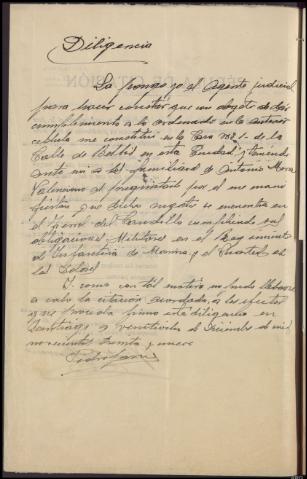 Diligencia
La pongo yo el Agente judicial
para hacer constar que con objeto de dar
cumplimiento a lo ordenado en la anterior
cedula me constituí en la Casa nº 1 de la
Calle de en esta Ciudad y teniendo
ante mi a los familiares de Antonio Mora
al preguntarle por el me mani
fiestan que dicho sujeto se encuentra en
el Ferrol del Caudillo cumpliendo sus
obligaciones Militares en el Regimiento
de Infanteria de Marina y el Cuartel de
los Dolores
Y como con tal motivo no pudo llevarse
a cabo la citación acordada, a los efectos
que proceda firmo esta diligencia en
Santiago a de Diciembre de mil
novecientos treinta y nueve